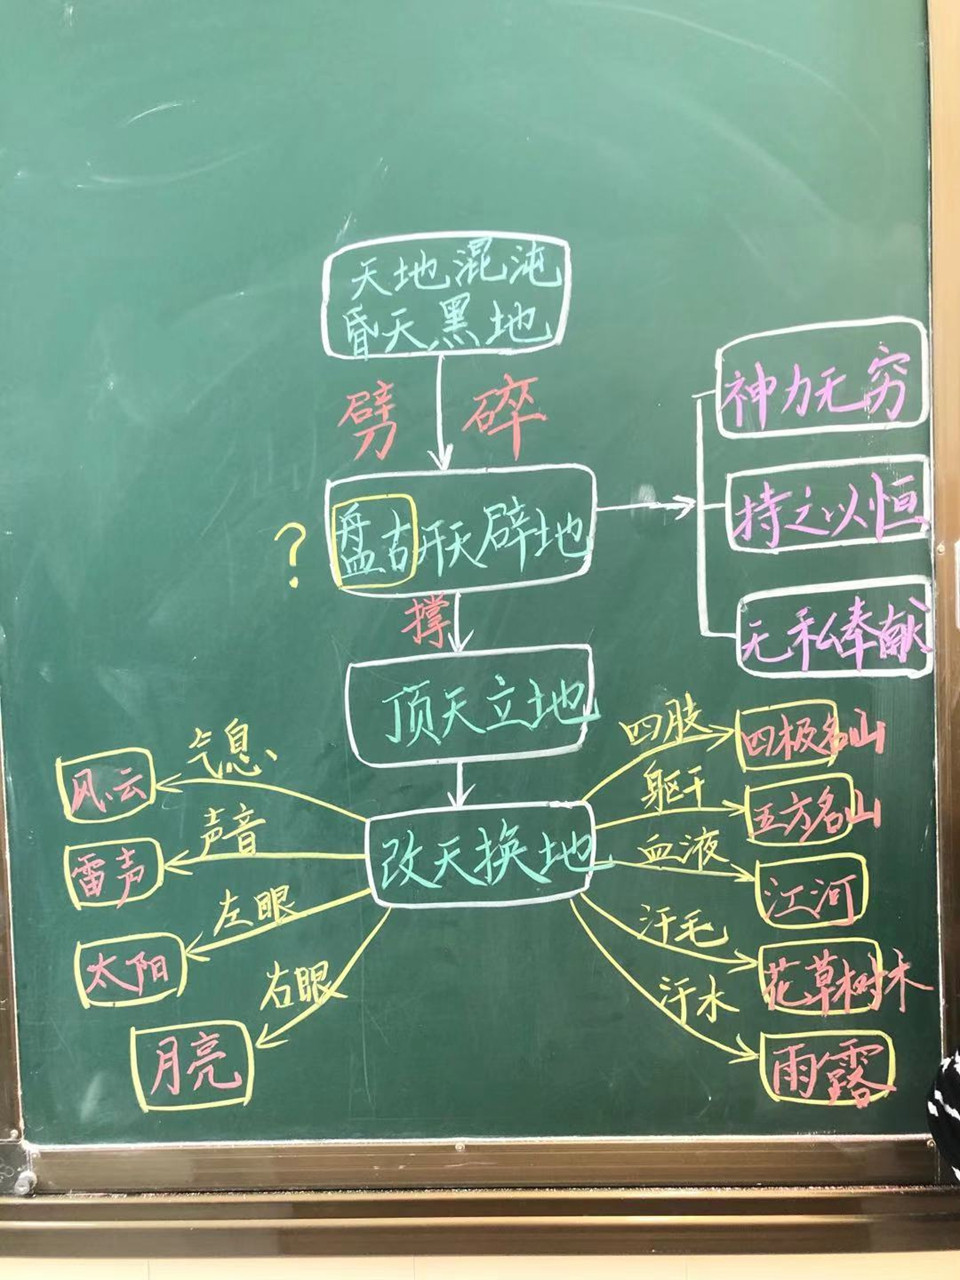 天地混沌
昏天黑地
劈 碎
神力无穷
? 盘古开天辟地
持之以恒
撑
无私奉献
顶天立地
四肢
四极名山
气息
风云
躯干
五方名山
声音
雷声
改天换地
血液
江河
左眼
太阳
汗毛
花草树木
右眼
月亮
汗水
雨露